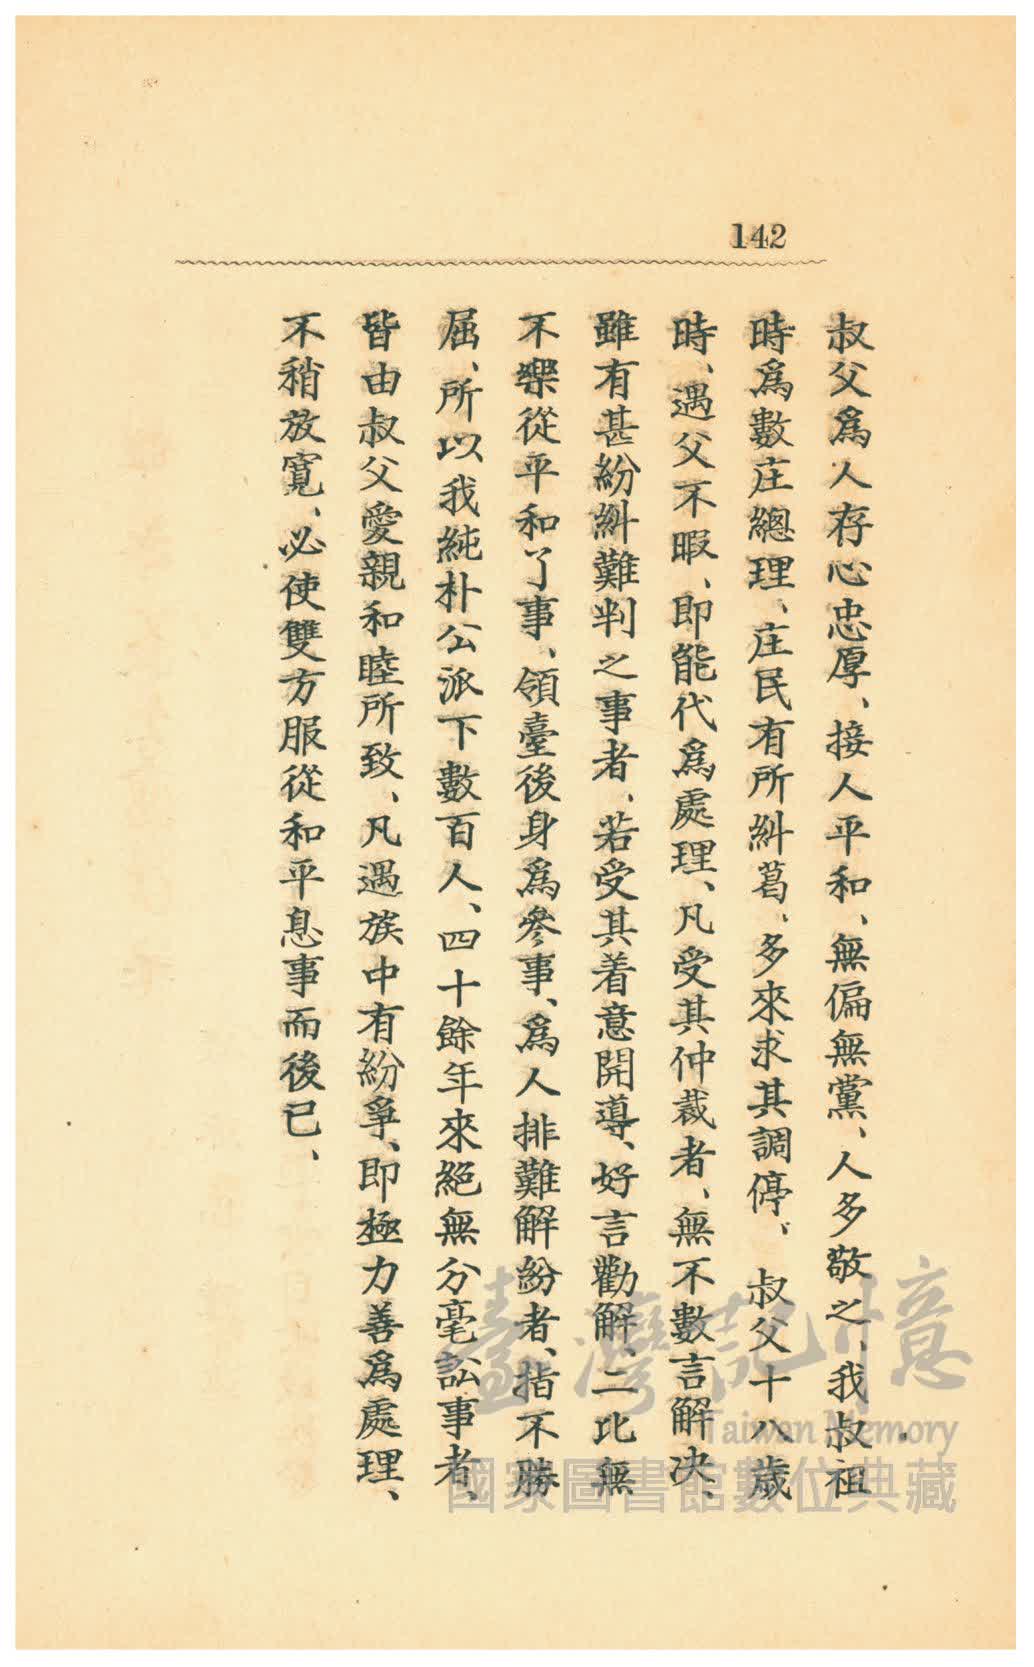 142
叔父爲人存心忠厚、接人平和、無偏無黨、人多敬之、我叔祖
時爲數庄總理、庄民有所糾葛、多來求其調停、 叔父十八歲
時、遇父不暇、即能代爲處理、凡受其仲裁者、無不數言解决、
雖有甚紛糾難判之事者、若受其着意開導、好言勸解、二比無
不樂從平和了事、領臺後身爲參事、爲人排難解紛者、指不勝
屈、所以我純朴公派下數百人、四十餘年來絕無分毫訟事者、
皆由叔父愛親和睦所致、凡遇族中有紛爭、即極力善爲處理、
不稍放寬、必使雙方服從和平息事而後已、
臺灣記憶
Taiwan Memory
國家圖書館數位典藏